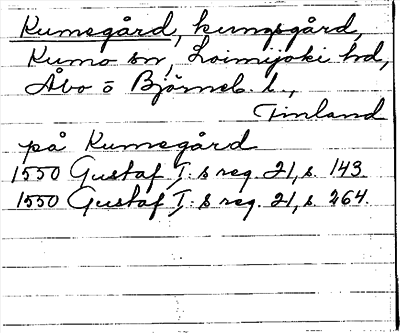 Kumogård, kungsgård,
Kumo sn, Loimijoki hd,
Åbo o Björneb. l.,
Finland
på Kumogård
1550 Gustaf I:s reg. 21, s. 143.
1550 Gustaf I:s reg. 21, s. 264.